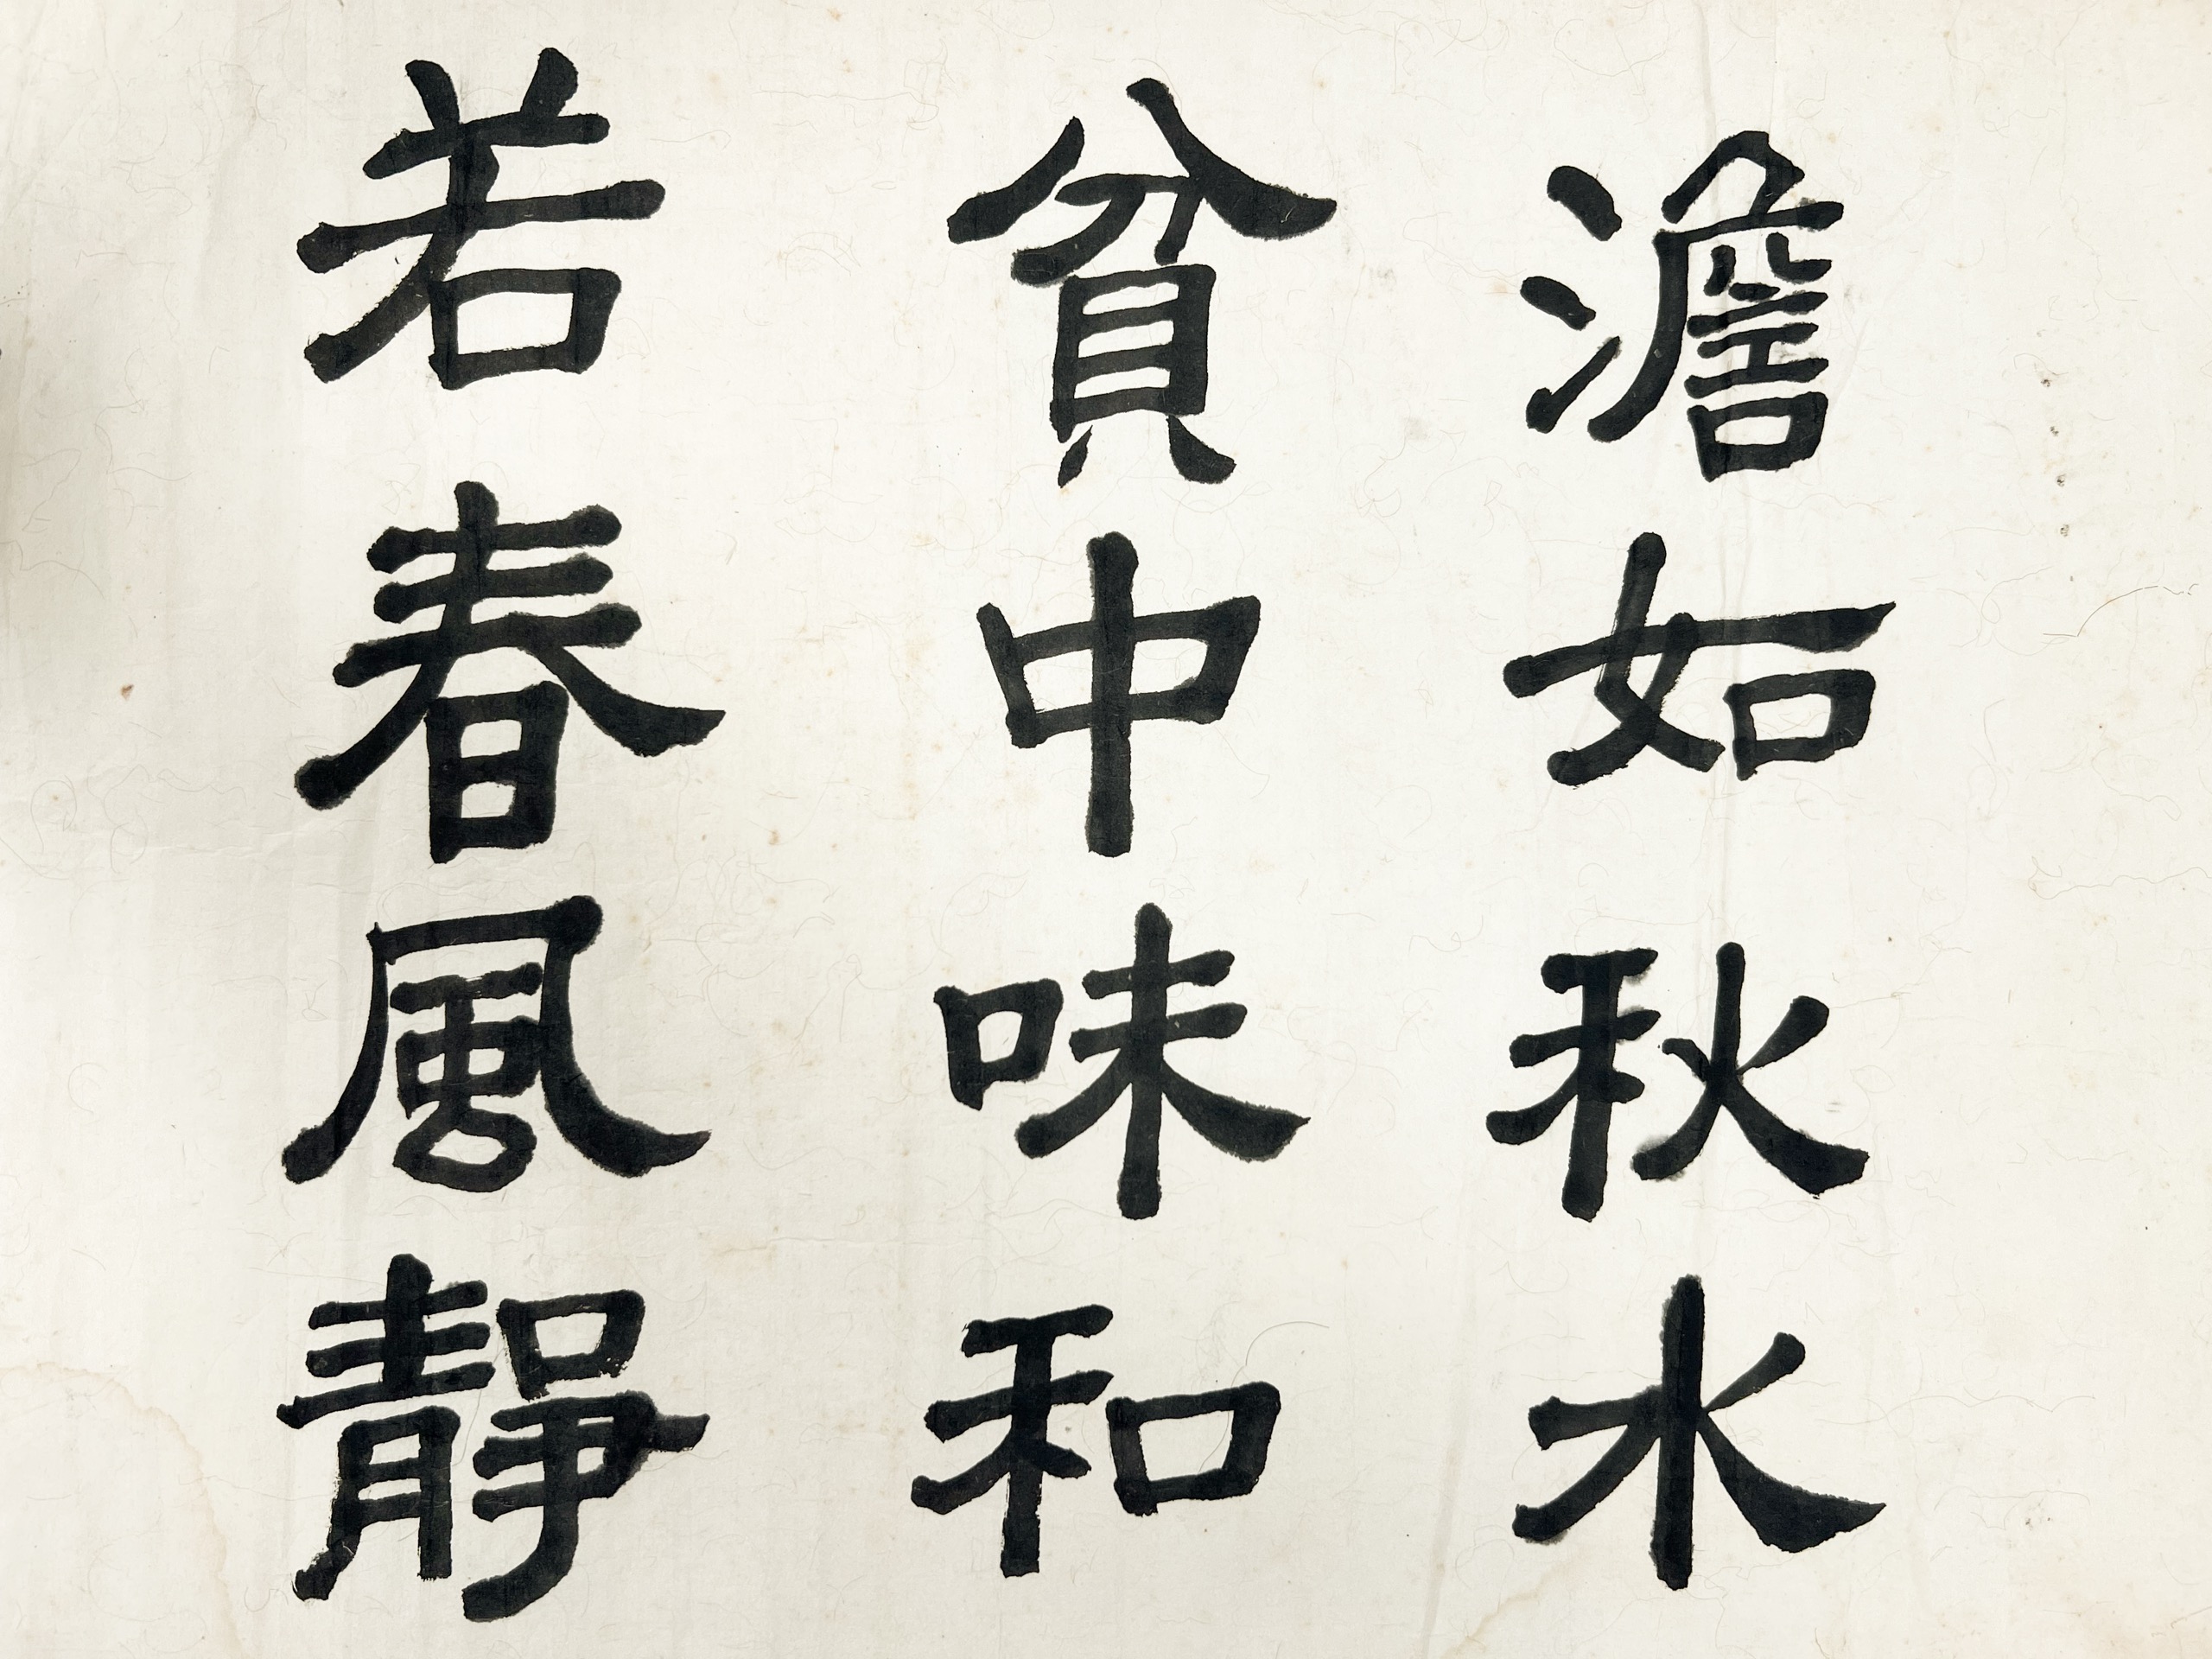 澹如秋水
貧中味和
若春風靜